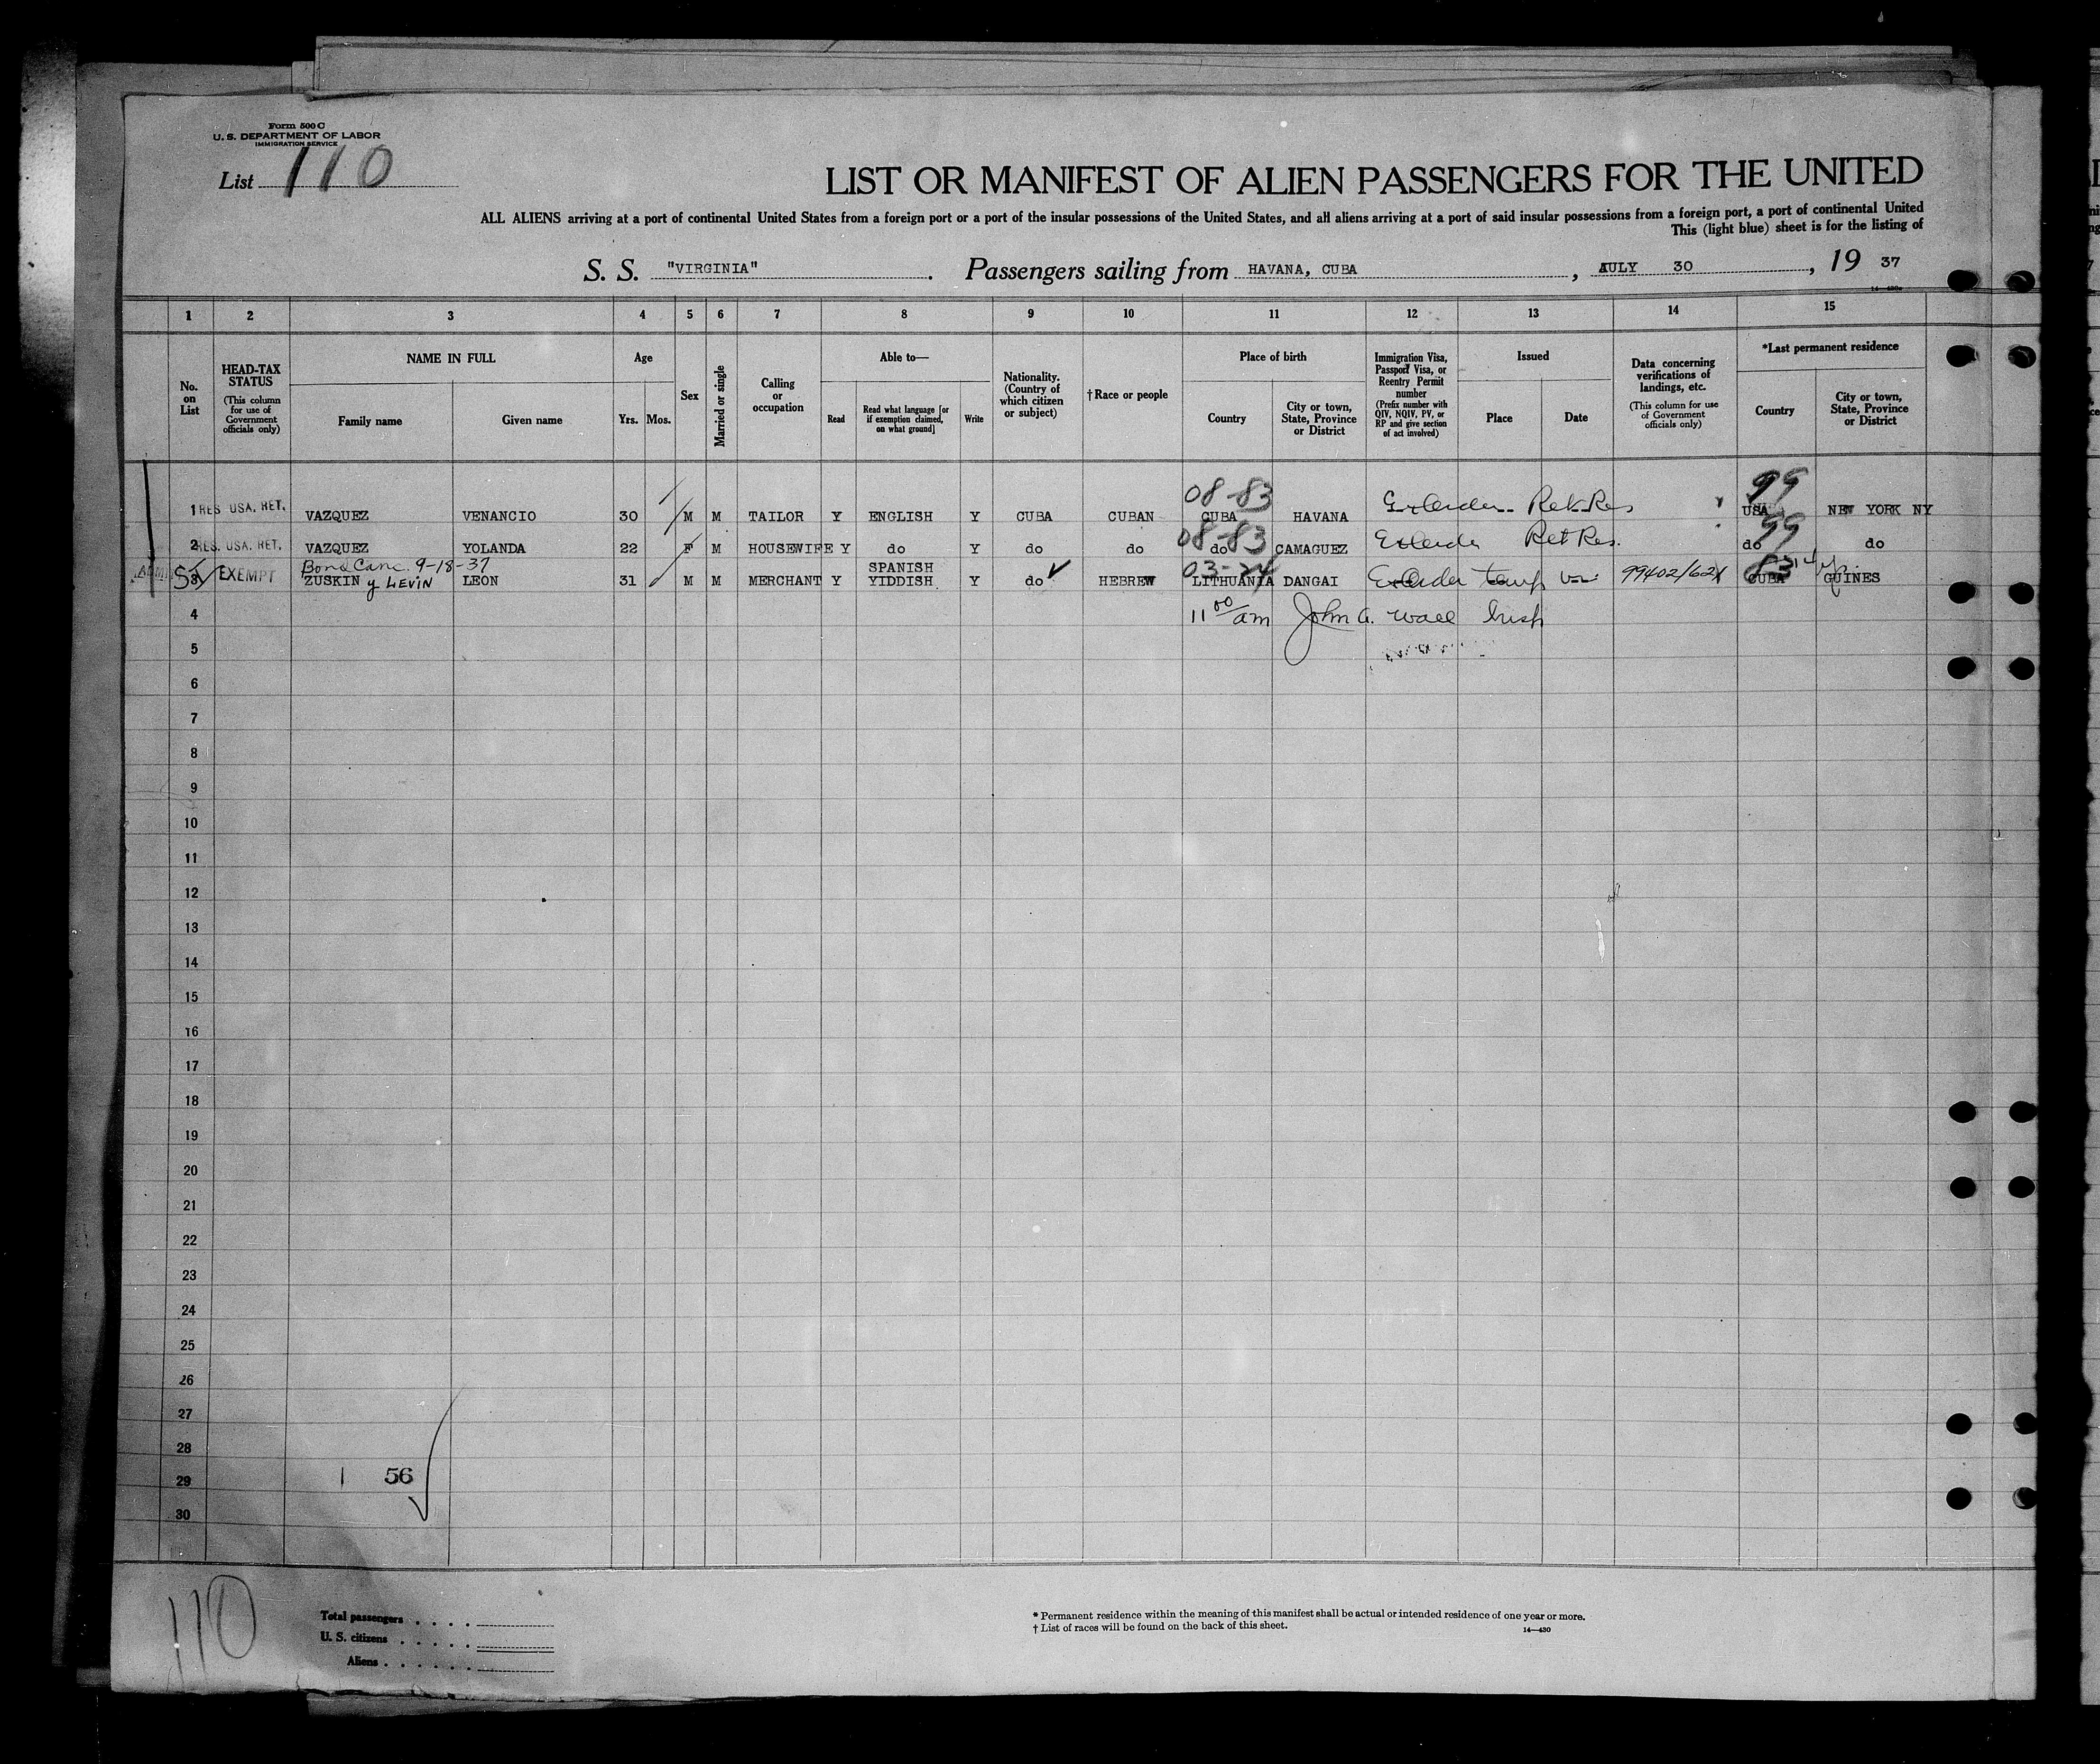 Form 500 C
U. S. DEPARTMENT OF LABOR
IMMIGRATION SERVICE
List 110
LIST OR MANIFEST OF ALIEN PASSENGERS FOR THE UNITED
ALL ALIENS arriving at a port of continental United States from a foreign port or a port of the insular possessions of the United States, and all aliens arriving at a port of said insular possessions from a foreign port, a port of continental United
This (light blue) sheet is for the listing of
S. S. "VIRGINIA" . Passengers sailing from HAVANA, CUBA , JULY 30 , 19 37
1 2 3 4 5 6 7 8 9 10 11 12 13 14 15
No. on List
HEAD-TAX STATUS (This column for use of Government officials only)
NAME IN FULL
Family name Given name
Age
Yrs. Mos.
Sex
Married or single
Calling or occupation
Able to—
Read Read what language [or if exemption claimed, on what ground] Write
Nationality. (Country of which citizen or subject)
†Race or people
Place of birth
Country City or town, State, Province or District
Immigration Visa, Passport Visa, or Reentry Permit number (Prefix number with QIV, NQIV, PV, or RP and give section of act involved)
Issued
Place Date
Data concerning verifications of landings, etc. (This column for use of Government officials only)
*Last permanent residence
Country City or town, State, Province or District
08-83 99
1 RES USA. RET. VAZQUEZ VENANCIO 30 M M TAILOR Y ENGLISH Y CUBA CUBAN CUBA HAVANA Ret Res USA NEW YORK NY
08-83 99
2 RES. USA. RET. VAZQUEZ YOLANDA 22 F M HOUSEWIFE Y do Y do do do CAMAGUEZ Ret Res. do do
Bond Canc. 9-18-37 SPANISH 03-24 83
3 EXEMPT ZUSKIN y LEVIN LEON 31 M M MERCHANT Y YIDDISH Y do HEBREW LITHUANIA DANGAI temp 99402/621 CUBA GUINES
4 11 00 am John A. Wall Insp
5
6
7
8
9
10
11
12
13
14
15
16
17
18
19
20
21
22
23
24
25
26
27
28
29 56
30
110
Total passengers . . . .
U. S. citizens . . . . .
Aliens . . . . . .
* Permanent residence within the meaning of this manifest shall be actual or intended residence of one year or more.
† List of races will be found on the back of this sheet.
14—430